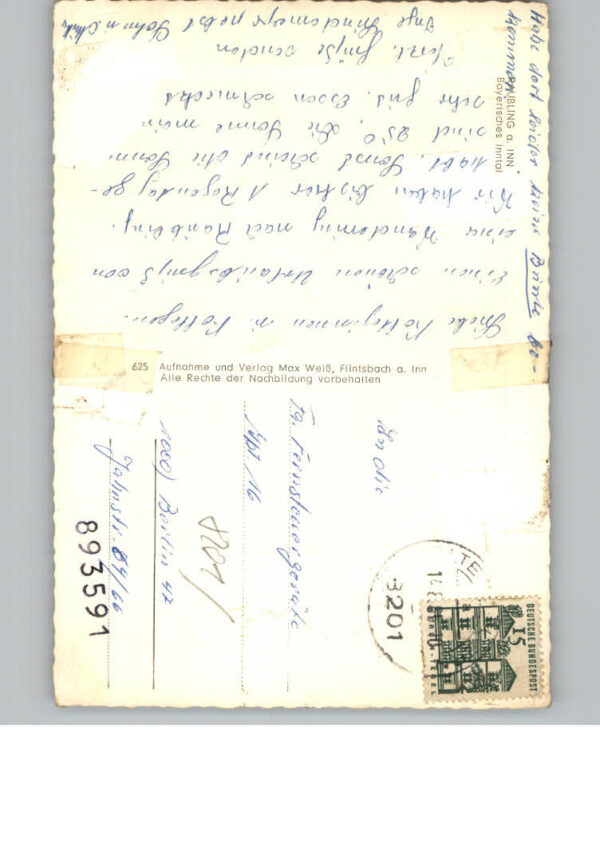 RAUBLING a. INN
Bayerisches Inntal
Liebe Kolleginnen u. Kollegen.
Einen schönen Urlaubsgruß von
einer Wanderung nach Raubling.
Wir haben bisher 1 Regentag ge-
habt. Sonst scheint die Sonne
sind 25°. Die Sonne
sehr gut. Essen schmeckt
Herzl. Grüße senden
Inge nebst Sohn u.
Habe dort leider keine Bärte be-
kommen
625 Aufnahme und Verlag Max Weiß, Flintsbach a. Inn
Alle Rechte der Nachbildung vorbehalten
An die
Fa. Fernsteuergeräte
Abt 16
1000) Berlin 47
Jahnstr. 84/66
8201
3201
15
DEUTSCHE BUNDESPOST
893591